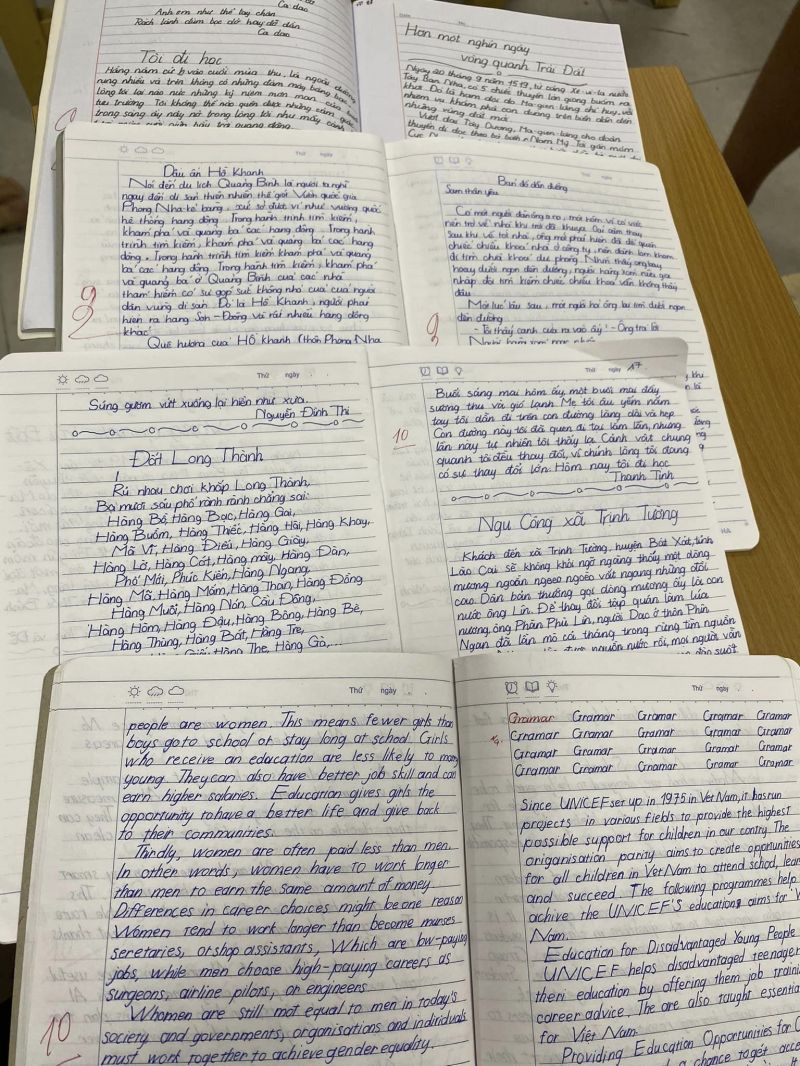 Ca dao
Anh em như thể tay chân
Rách lành đùm bọc dở hay đỡ đần
Ca dao
Tôi đi học
Hằng năm cứ vào cuối mùa thu, lá ngoài đường
rụng nhiều và trên không có những đám mây bàng bạc,
lòng tôi lại náo nức những kỷ niệm mơn man của
tựu trường. Tôi không thể nào quên được những cảm giác
trong sáng ấy nảy nở trong lòng tôi như mấy cành
Hơn một nghìn ngày
vòng quanh Trái Đất
Ngày 20 tháng 9 năm 1519, từ cảng Xê-vi-la nước
Tây Ban Nha, có 5 chiếc thuyền lớn giong buồm ra
khơi. Đó là hạm đội do Ma-gien-lăng chỉ huy, với
nhiệm vụ khám phá con đường trên biển dẫn đến
những vùng đất mới.
Vượt Đại Tây Dương, Ma-gien-lăng cho đoàn
thuyền đi dọc theo bờ biển Nam Mỹ. Tới gần mỏm
Thứ ngày
Dấu ấn Hồ Khanh
Nói đến du lịch Quảng Bình là người ta nghĩ
ngay đến di sản thiên nhiên thế giới Vườn quốc gia
Phong Nha-Kẻ Bàng, xứ sở được ví như vương quốc
hệ thống hang động. Trong hành trình tìm kiếm,
khám phá và quảng bá các hang động. Trong hành
trình tìm kiếm, khám phá và quảng bá các hang
động. Trong hành trình tìm kiếm khám phá và quảng
bá các hang động. Trong hành trình tìm kiếm, khám phá
và quảng bá ở Quảng Bình của các nhà
thám hiểm có sự góp sức không nhỏ của của người
dân vùng di sản. Đó là Hồ Khanh, người phát
hiện ra hang Sơn-Đoòng và rất nhiều hang động
khác.
Quê hương của Hồ Khanh (thôn Phong Nha
9
2
Thứ ngày
Bản đồ dẫn đường
Sam thân yêu
nên trở về nhà khi trời đã khuya.
Sau khi về tới nhà, ông mới phát hiện đã để quên
chiếc chìa khoá nhà ở công ty, nên đành
đi tìm chìa khoá dự phòng. Nhìn thấy ông loay
hoay dưới ngọn đèn đường, người hàng xóm
nhập đội tìm kiếm chiếc chìa khoá vẫn không thấy
đâu.
Một lúc lâu sau, một người hỏi ông lại tìm dưới ngọn
đèn đường
- Tôi thấy cạnh cửa ra vào ấy! - Ông trả lời
9
Thứ ngày
Súng gươm vứt xuống lại hiền như xưa.
Nguyễn Đình Thi
Đất Long Thành
Rủ nhau chơi khắp Long Thành,
Ba mươi sáu phố rành rành chẳng sai:
Hàng Bồ, Hàng Bạc, Hàng Gai,
Hàng Buồm, Hàng Thiếc, Hàng Hài, Hàng Khay,
Mã Vĩ, Hàng Điếu, Hàng Giày,
Hàng Lờ, Hàng Cót, Hàng mây, Hàng Đàn,
Phố Mới, Phúc Kiến, Hàng Ngang,
Hàng Mã, Hàng Mắm, Hàng Than, Hàng Đồng
Hàng Muối, Hàng Nón, Cầu Đông,
Hàng Hòm, Hàng Đậu, Hàng Bông, Hàng Bè,
Hàng Thùng, Hàng Bát, Hàng Tre,
Hàng The, Hàng Gà,...
Thứ ngày 17
Buổi sáng mai hôm ấy, một buổi mai đầy
sương thu và gió lạnh. Mẹ tôi âu yếm nắm
tay tôi dẫn đi trên con đường làng dài và hẹp.
Con đường này tôi đã quen đi lại lắm lần, nhưng
lần này tự nhiên tôi thấy lạ. Cảnh vật chung
quanh tôi đều thay đổi, vì chính lòng tôi đang
có sự thay đổi lớn: Hôm nay tôi đi học
Thanh Tịnh
10
Ngu Công xã Trịnh Tường
Khách đến xã Trịnh Tường, huyện Bát Xát, tỉnh
Lào Cai sẽ không khỏi ngỡ ngàng thấy một dòng
mương ngoằn ngoèo vắt ngang những đồi
cao. Dân bản thường gọi dòng mương ấy là con
nước ông Lìn. Để thay đổi tập quán làm lúa
nương, ông Phàn Phù Lìn, người Dao ở thôn Phìn
Ngan đã lần mò cả tháng trong rừng tìm nguồn
được nguồn nước rồi, mọi người vẫn
Thứ ngày
people are women. This means fewer girls than
boys go to school or stay long at school. Girls
who receive an education are less likely to marry
young. They can also have better job skill and can
earn higher salaries. Education gives girls the
opportunity to have a better life and give back
to their communities.
Thirdly, women are often paid less than men.
In other words, women have to work longer
than men to earn the same amount of money.
Differences in career choices might be one reason
Women tend to work longer than become murses
seretaries, or shop assistants, Which are low-paying
jobs, while men choose high-paying careers as
surgeons, airline pilots, or engineers
Whomen are still mot equal to men in today's
society and governments, organisations and individuals
must work together to achieve gender equality.
10
Thứ ngày
Gramar Gramar Gramar Gramar Gramar
Grnamar Gramar Gramar Gramar Gramar
Gramar Gramar Gramar Gramar Gramar
Gramar Gramar Gnamar Gramar Gramar
Since UNICEF set up in 1975 in Viet Nam, it has run
projects in various fields to provide the highest
possible support for children in our contry. The
origanisation parity aims to create opportunities
for all children in Viet Nam to attend school, lear
and succeed. The following programmes help
achive the UNICEF'S educationg aims for V
Nam.
Education for Disadvantaged Young People
UNICEF helps disadvantaged teenager
theri education by offering them job traini
career advice. The are also taught essentia
for Việt Nam.
Providing Education Opportunities for C
a chance to get acce